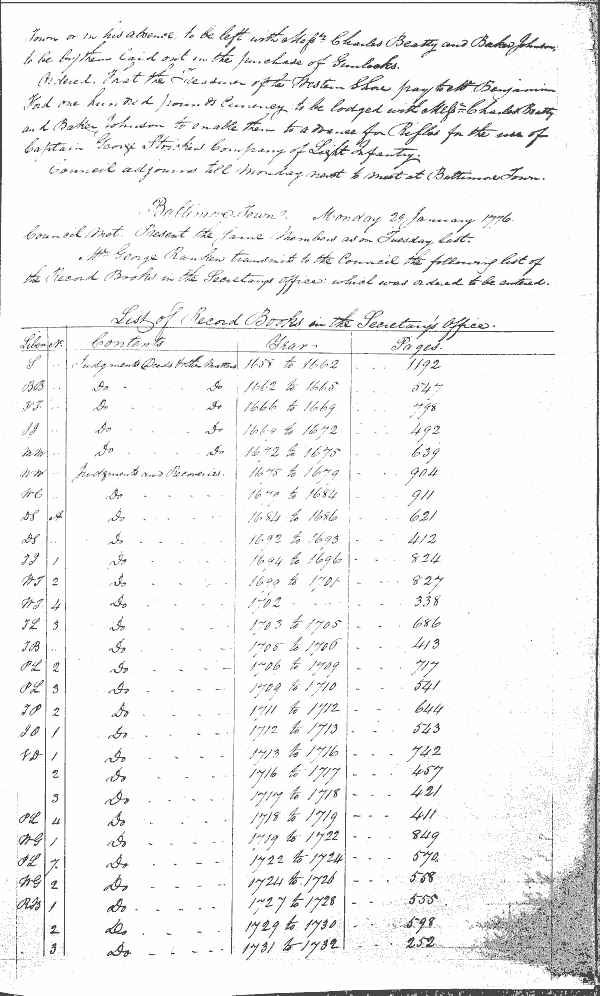 Town or in his absence to be left with Messrs. Charles Beatty and Baker Johnson
to be by them laid out in the purchase of Gunlocks.
Ordered. That the Treasurer of the Western Shore pay to Mr Benjamin
Ford one hundred pounds Currency to be lodged with Messrs. Charles Beatty
and Baker Johnson to enable them to advance for Rifles for the use of
Captain George Stricker Company of Light Infantry.
Council adjourns till Monday next to meet at Baltimore Town.
Baltimore Town. Monday 29 January 1776.
Council Met. Present the same Members as on Tuesday last.
Mr. George Ranken transmits to the Council the following list of
the Record Books in the Secretary's Office which was ordered to be entered.
List of Record Books in the Secretary's Office.
Liber No. Contents Years Pages
S Judgments Deeds & other Matters 1658 to 1662 1192
BB Do Do 1662 to 1665 547
Do Do 1666 to 1669 798
JJ Do Do 1669 to 1672 492
MM Do Do 1672 to 1675 639
Judgments and Recoveries. 1675 to 1679 904
WC Do to 1684 911
DS A Do 1684 to 1686 621
DS Do 1692 to 1693 412
1 Do 1694 to 1696 824
WT 2 Do 1699 to 1701 827
WT 4 Do 1702 338
TL 3 Do 1703 to 1705 686
TB Do 1705 to 1706 413
PL 2 Do 1706 to 1709 717
PL 3 Do 1709 to 1710 541
TP 2 Do 1711 to 1712 644
IO 1 Do 1712 to 1713 543
VD 1 Do 1713 to 1716 742
2 Do 1716 to 1717 457
3 Do 1717 to 1718 421
PL 4 Do 1718 to 1719 411
WG 1 Do 1719 to 1722 849
PL 7 Do 1722 to 1724 570
WG 2 Do 1724 to 1726 558
RB 1 Do 1727 to 1728 555
2 Do 1729 to 1730 598
3 Do 1731 to 1732 252